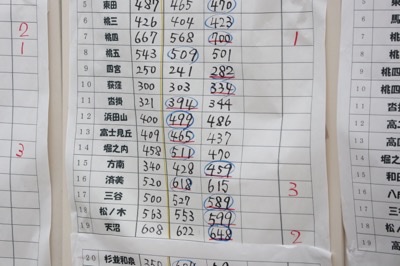 5 東田 487 465 470
6 桃三 426 404 423
7 桃四 667 568 700 1
8 桃五 543 509 501
9 四宮 250 241 282
10 荻窪 300 303 334
11 沓掛 321 394 344
12 浜田山 400 499 486
13 富士見丘 409 465 437
14 堀之内 458 511 470
15 方南 340 428 459
16 済美 520 618 615 3
17 三谷 500 527 589
18 松ノ木 563 553 599
19 天沼 608 622 648 2
20 杉並和泉
2
1
3
5
6
7
8 桃
9 桃四
10 四
11
12
13 高
14 高
15 和田
16
17 方
18 高
19 高